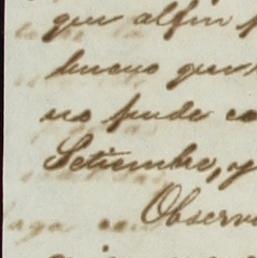 que alfin
bueno que
no pude co
Setiembre, y
Observ